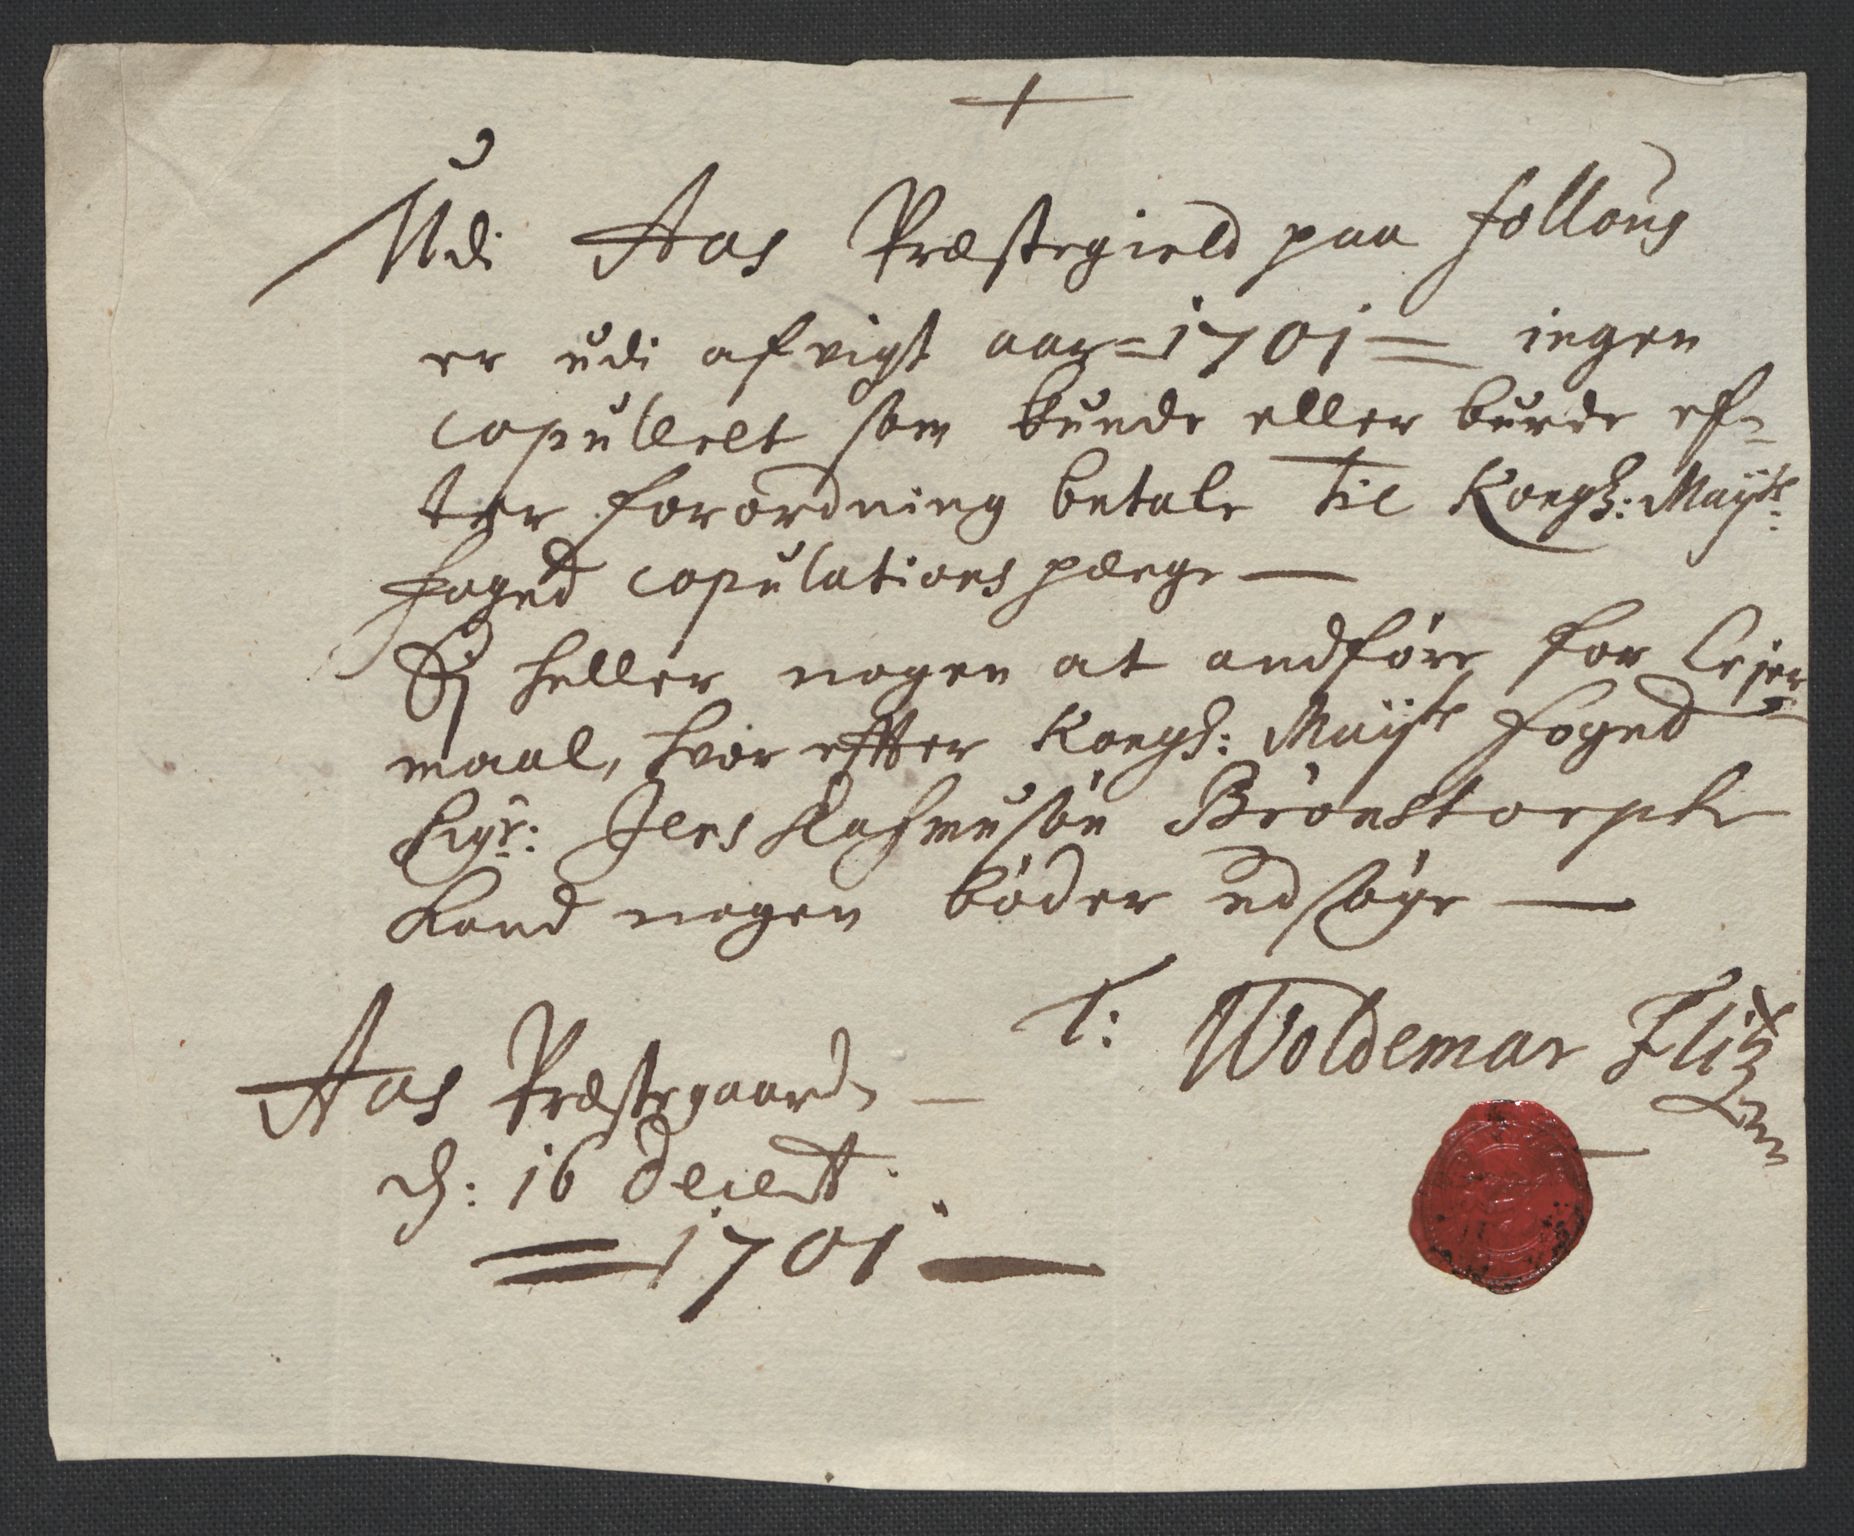 Udi Aas Præstegield paa folloug
er udi afvigt aar = 1701 = ingen
copulleret som kunde eller burde ef=
ter forordning betale til Kongl: Mayts
foged copulations penge —
Ej heller nogen at andføre for Lejer
maal, hvor effter Kongl: Mayts foged
Sigr: Jens Rasmusøn Brönstorph
kand nogen böder udsøge —
T: Woldemar
Aas Præstegaard —
d: 16 Decemb:
= 1701 —